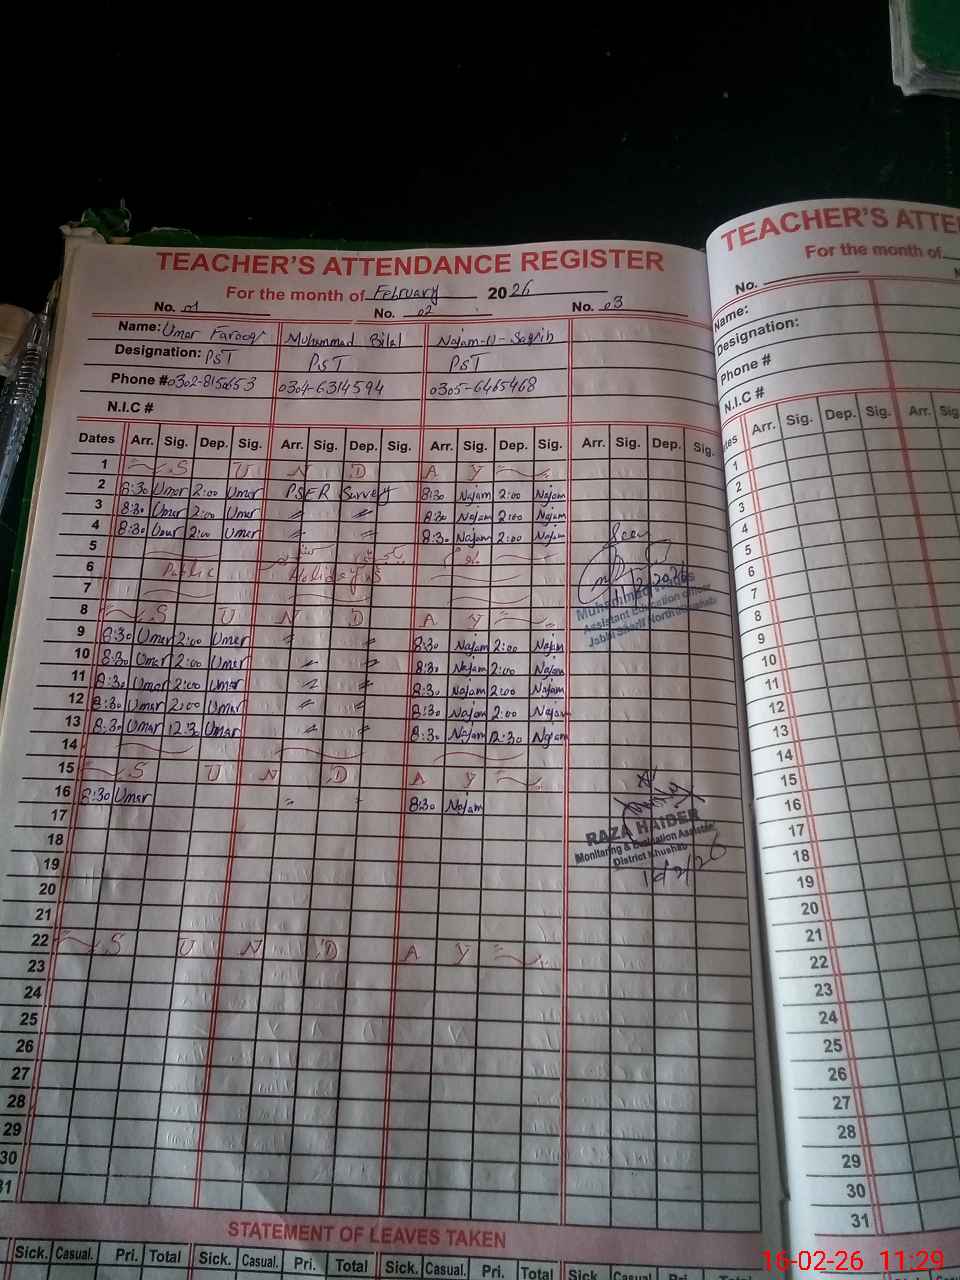 TEACHER'S ATTENDANCE REGISTER
For the month of February 2026
No. 01 No. 02 No. 03
Name: Umar Farooq Muhammad Bilal Najam-U-Saqib
Designation: PST PST PST
Phone # 0304-6314594 0305-6465468
N.I.C #
Dates Arr. Sig. Dep. Sig. Arr. Sig. Dep. Sig. Arr. Sig. Dep. Sig. Arr. Sig. Dep. Sig.
1 S U N D A Y
2 8:30 Umar 2:00 Umar PSER Survey 8:30 Najam 2:00 Najam
3 8:30 Umar 2:00 Umar 〃 〃 8:30 Najam 2:00 Najam
4 8:30 Umar 2:00 Umar 〃 〃 8:30 Najam 2:00 Najam
5
6 Public Holidays
7
8 S U N D A Y
9 8:30 Umar 2:00 Umar 〃 〃 8:30 Najam 2:00 Najam
10 8:30 Umar 2:00 Umar 〃 〃 8:30 Najam 2:00 Najam
11 8:30 Umar 2:00 Umar 〃 〃 8:30 Najam 2:00 Najam
12 8:30 Umar 2:00 Umar 〃 〃 8:30 Najam 2:00 Najam
13 8:30 Umar 12:30 Umar 〃 〃 8:30 Najam 12:30 Najam
14
15 S U N D A Y
16 8:30 Umar 〃 〃 8:30 Najam
17
18
19
20
21
22 S U N D A Y
23
24
25
26
27
28
29
30
31
Seen
Assistant Education Officer
Jabbi Sharif North
RAZA HAIDER
Monitoring & Evaluation Assistant
District Khushab
16/2/26
STATEMENT OF LEAVES TAKEN
Sick. Casual. Pri. Total Sick. Casual. Pri. Total Sick. Casual. Pri. Total Sick. Casual. Pri.
TEACHER'S ATTE
For the month of
No.
Name:
Designation:
Phone #
N.I.C #
Arr. Sig. Dep. Sig. Arr. Sig
1
2
3
4
5
6
7
8
9
10
11
12
13
14
15
16
17
18
19
20
21
22
23
24
25
26
27
28
29
30
31
16-02-26 11:29